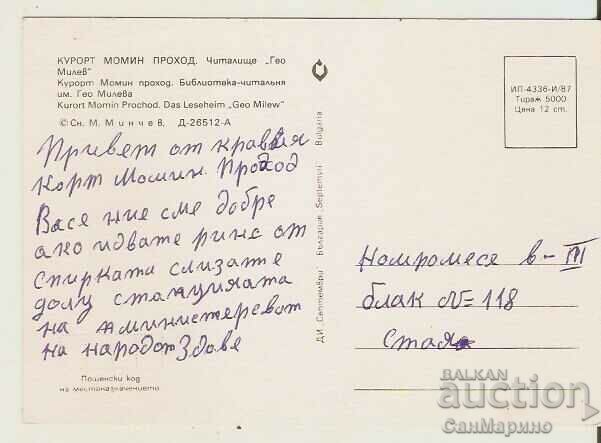 КУРОРТ МОМИН ПРОХОД. Читалище „Гео
Милев"
Курорт Момин проход. Библиотека-читальня
им. Гео Милева
Kurort Momin Prochod. Das Leseheim „Geo Milew"
© Сн. М. Минчев, Д-26512-А
Привет от
Корт Момин Проход
Васе ние сме добре
ако идвате
от
спирката слизате
долу
на
на народот Здове
Пощенски код
на местоназначението
ДИ „Септември" България „Septemvri" Bulgaria
ИП-4336-И/87
Тираж 5000
Цена 12 ст.
в-III
блак №=118
Стая
BALKAN
auction
СанМарино